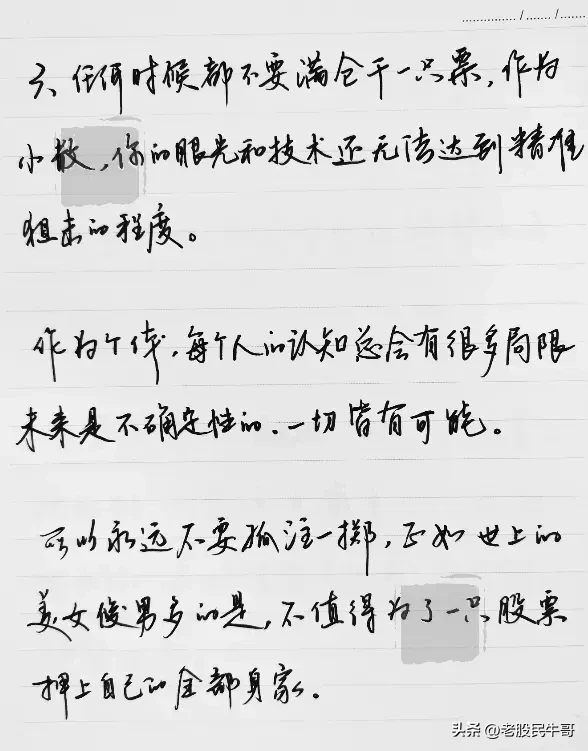 三、任何时候都不要满仓干一只票，作为
小散，你的眼光和技术还无法达到精准
狙击的程度。
作为个体，每个人的认知总会有很多局限
未来是不确定性的．一切皆有可能。
所以永远不要孤注一掷，正如世上的
美女俊男多的是，不值得为了一只股票
押上自己的全部身家。
头条 @老股民牛哥